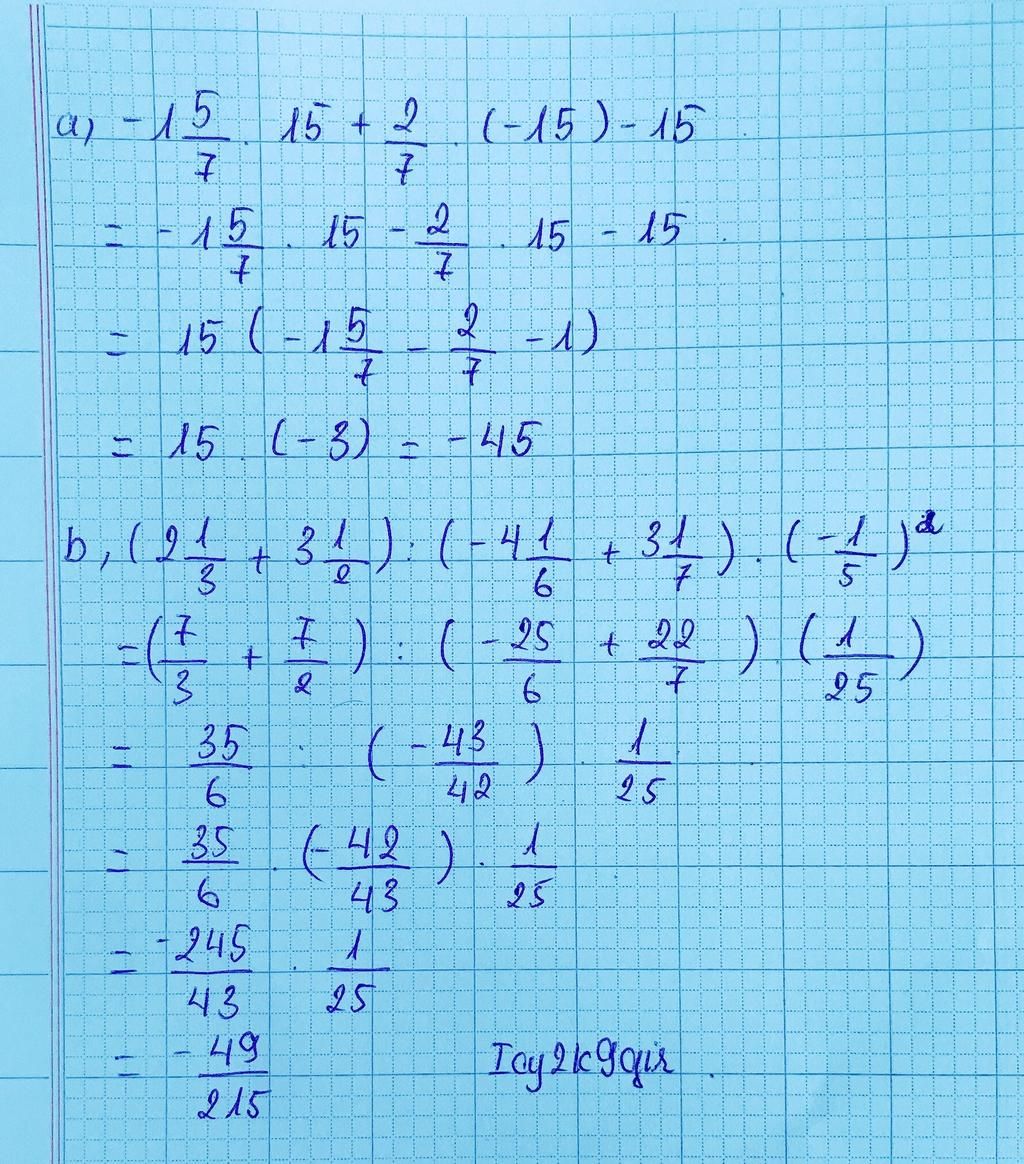 a, -1 5/7 . 15 + 2/7 . (-15) - 15
= -1 5/7 . 15 - 2/7 . 15 - 15
= 15 (-1 5/7 - 2/7 - 1)
= 15 . (-3) = -45
b, (2 1/3 + 3 1/2) : (-4 1/6 + 3 1/7) . (-1/5)²
= (7/3 + 7/2) : (-25/6 + 22/7) . (1/25)
= 35/6 : (-43/42) . 1/25
= 35/6 . (-42/43) . 1/25
= -245/43 . 1/25
= -49/215